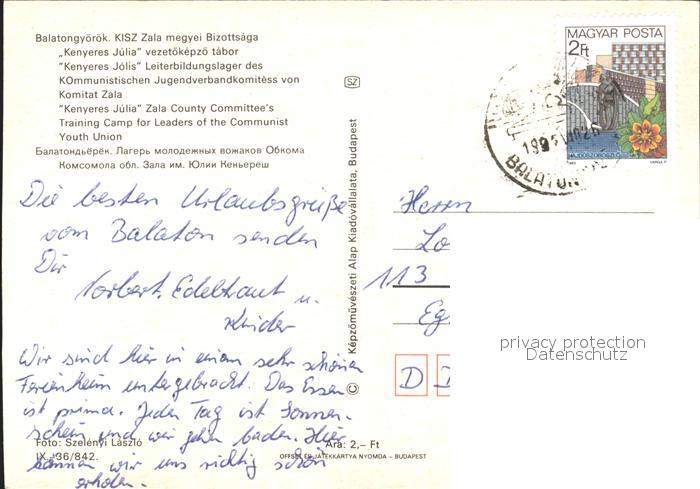 Balatongyörök. KISZ Zala megyei Bizottsága
„Kenyeres Júlia" vezetőképző tábor
"Kenyeres Jólis" Leiterbildungslager des
KOmmunistischen Jugendverbandkomitèss von
Komitat Zala
"Kenyeres Júlia" Zala County Committee's
Training Camp for Leaders of the Communist
Youth Union
Балатондьёрёк. Лагерь молодежных вожаков Обкома
Комсомола обл. Зала им. Юлии Кеньереш
Die besten Urlaubsgrüße
vom Balaton senden
Dir
Norbert, Edeltraut u.
Kinder
Wir sind hier in einem sehr schönen
Ferienheim untergebracht. Das Essen
ist prima. Jeden Tag ist Sonnen-
schein und wir gehn baden. Hier
können wir uns richtig schön
erholen.
Foto: Szelényi László
Ára: 2,– Ft
IX. 36/842.
OFFSET ÉS JÁTÉKKÁRTYA NYOMDA – BUDAPEST
SZ
© Képzőművészeti Alap Kiadóvállalata, Budapest
MAGYAR POSTA
2Ft
HAJDÚSZOBOSZLÓ
BALATON
Herrn
Lo
113
Eg
D D
privacy protection
Datenschutz